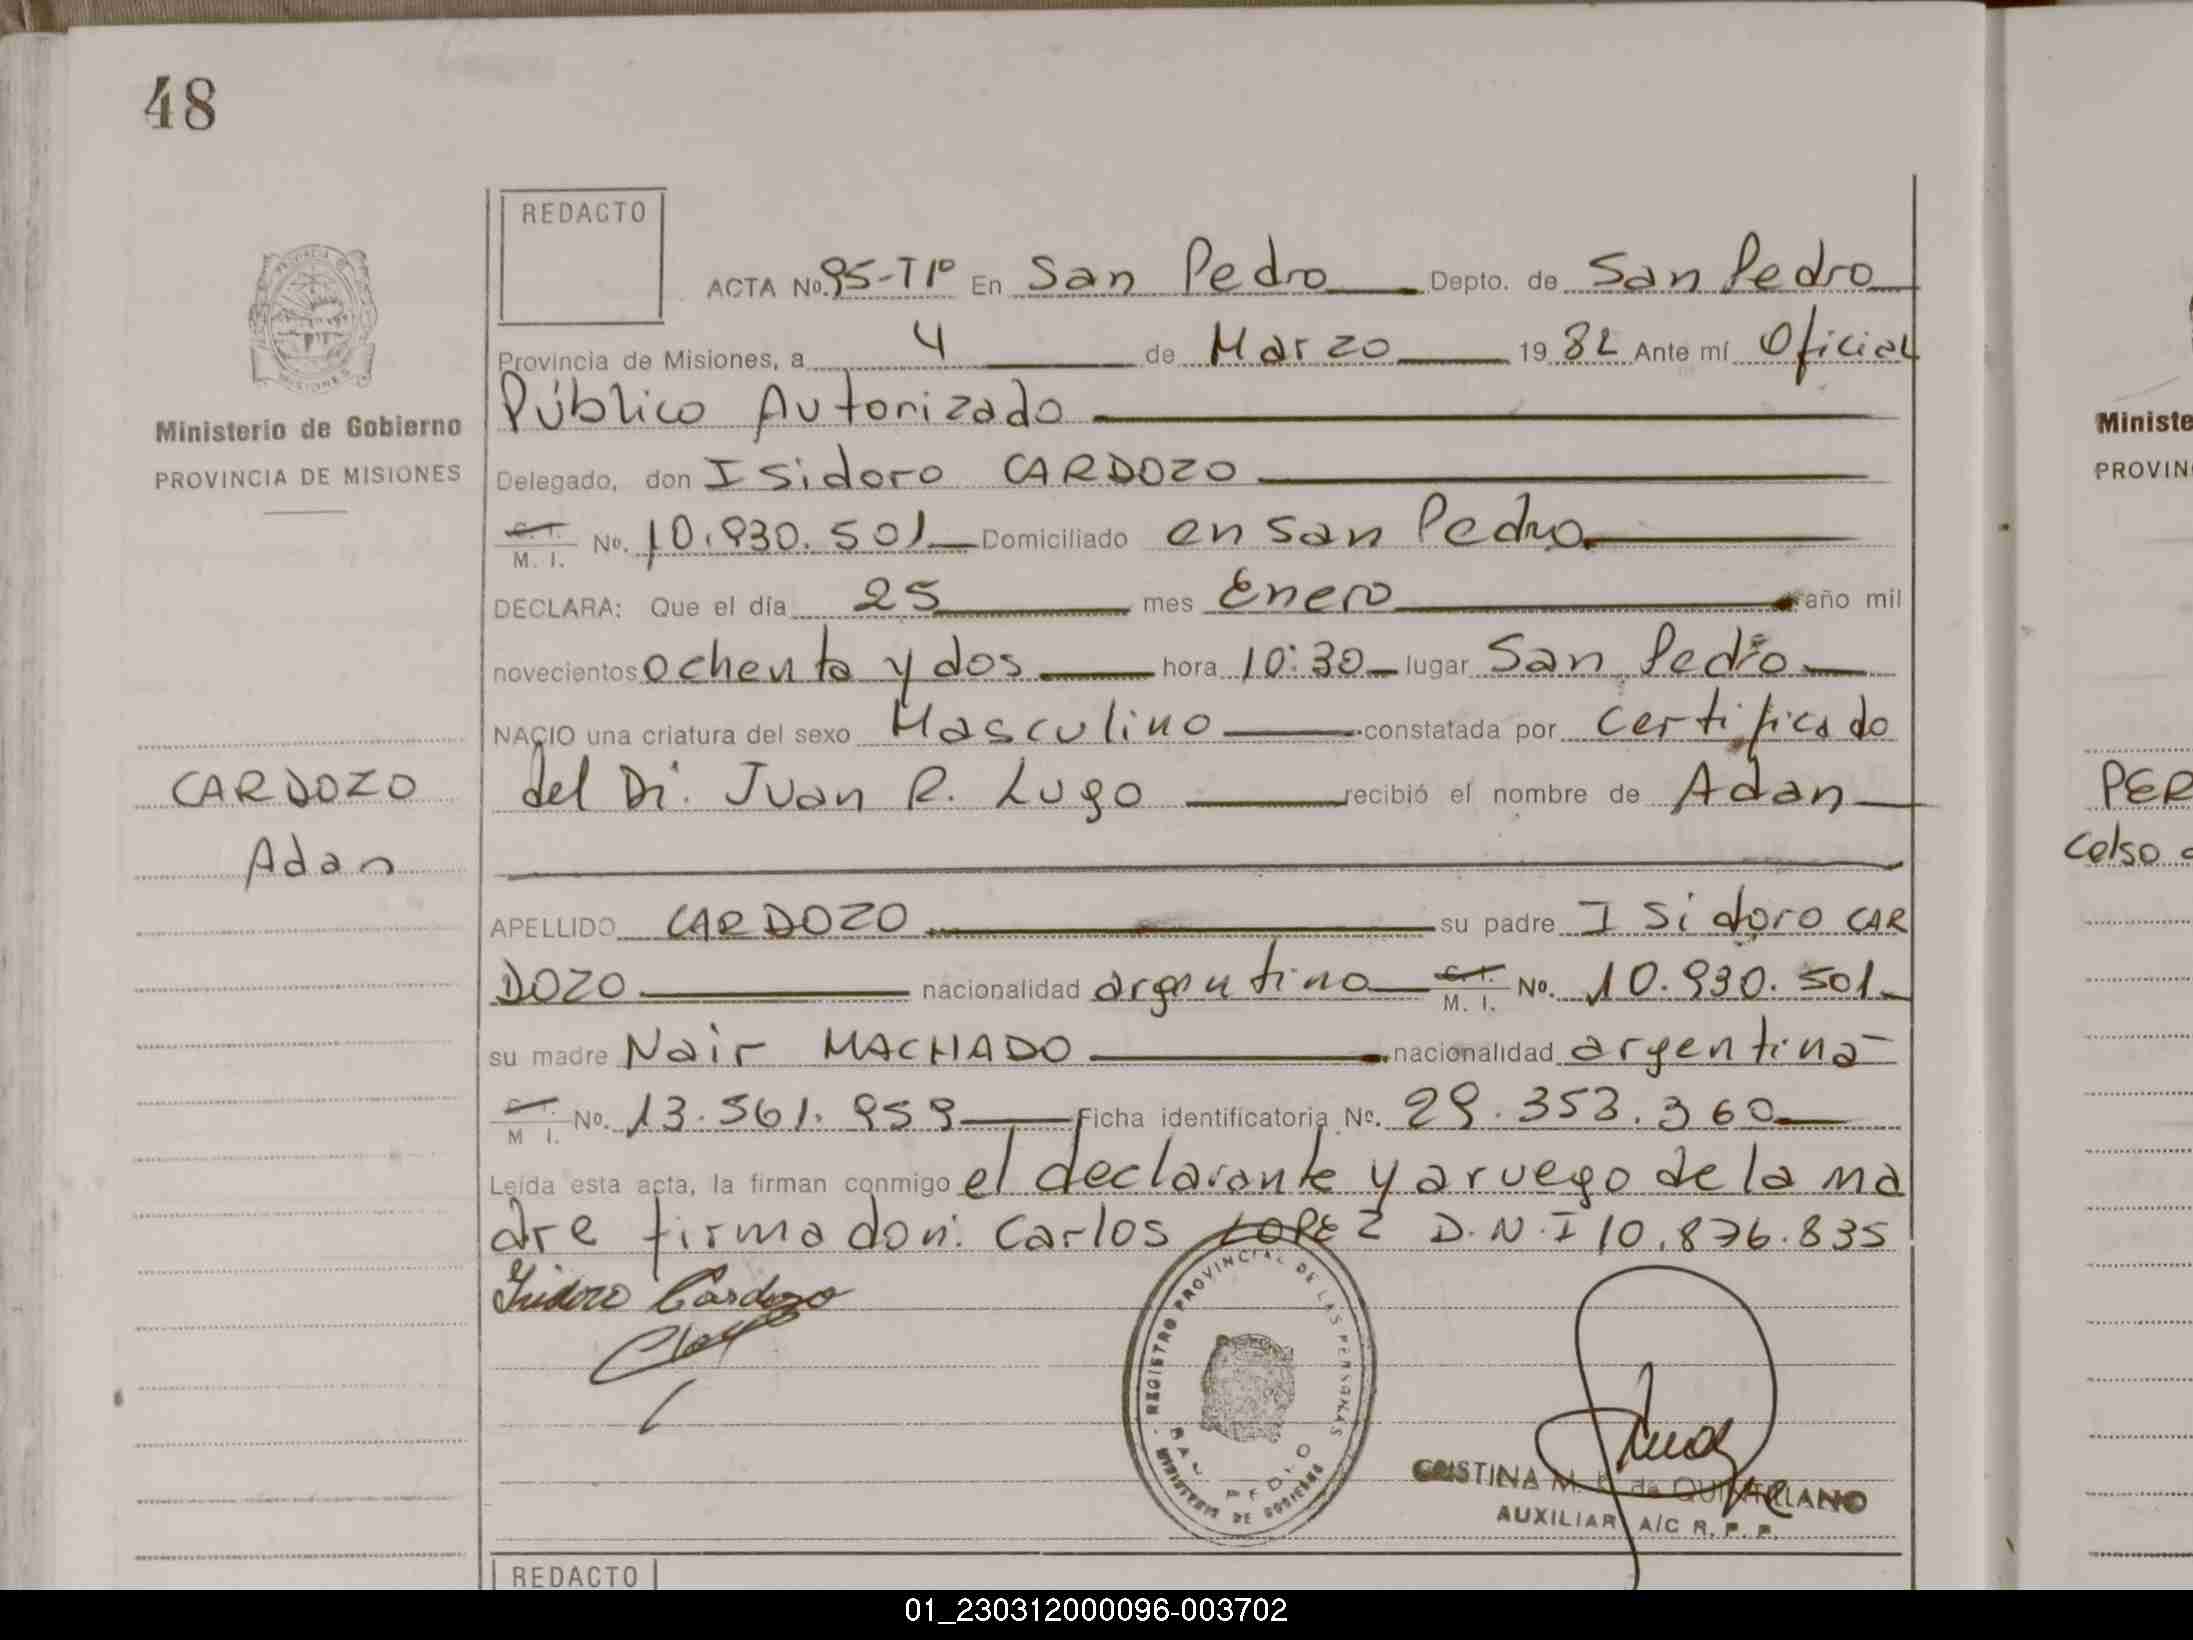 48
REDACTO
ACTA No. 95-T1º En San Pedro Depto. de San Pedro
Provincia de Misiones, a 4 de Marzo 1982 Ante mí Oficial
Público Autorizado
Delegado, don Isidoro CARDOZO
C. I. M. I. No. 10.930.501 Domiciliado en San Pedro
DECLARA: Que el día 25 mes Enero año mil
novecientos ochenta y dos hora 10:30 lugar San Pedro
NACIO una criatura del sexo Masculino constatada por certificado
del Dr. Juan R. Lugo recibió el nombre de Adan
APELLIDO CARDOZO su padre Isidoro CAR
DOZO nacionalidad argentino C. I. M. I. No. 10.930.501
su madre Nair MACHADO nacionalidad argentina
C. I. M. I. No. 13.561.959 Ficha identificatoria No. 29.353.360
Leída esta acta, la firman conmigo el declarante y a ruego de la ma
dre firma don: Carlos LOPEZ D.N.I 10.876.835
Isidoro Cardozo
REGISTRO PROVINCIAL DE LAS PERSONAS
SAN PEDRO
MINISTERIO DE GOBIERNO
CRISTINA M. de QUINTELANO
AUXILIAR A/C R. P. P.
REDACTO
PROVINCIA DE
MISIONES
Ministerio de Gobierno
PROVINCIA DE MISIONES
CARDOZO
Adan
Ministe
PROVIN
PER
Celso
01_230312000096-003702